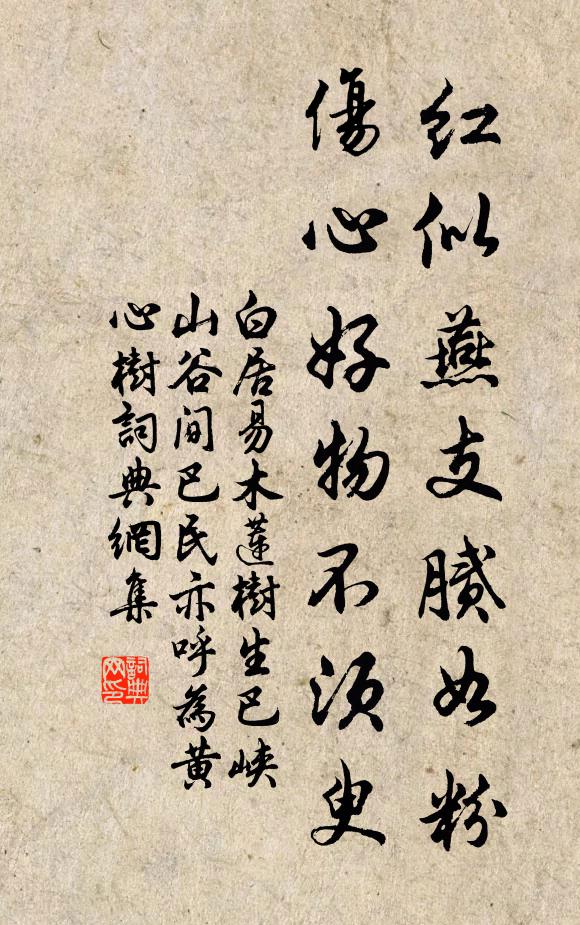 红似燕支膩如粉
傷心好物不須臾
白居易木蓮樹生巴峽
山谷間巴民亦呼為黄
心樹詞典網集
詞典网印